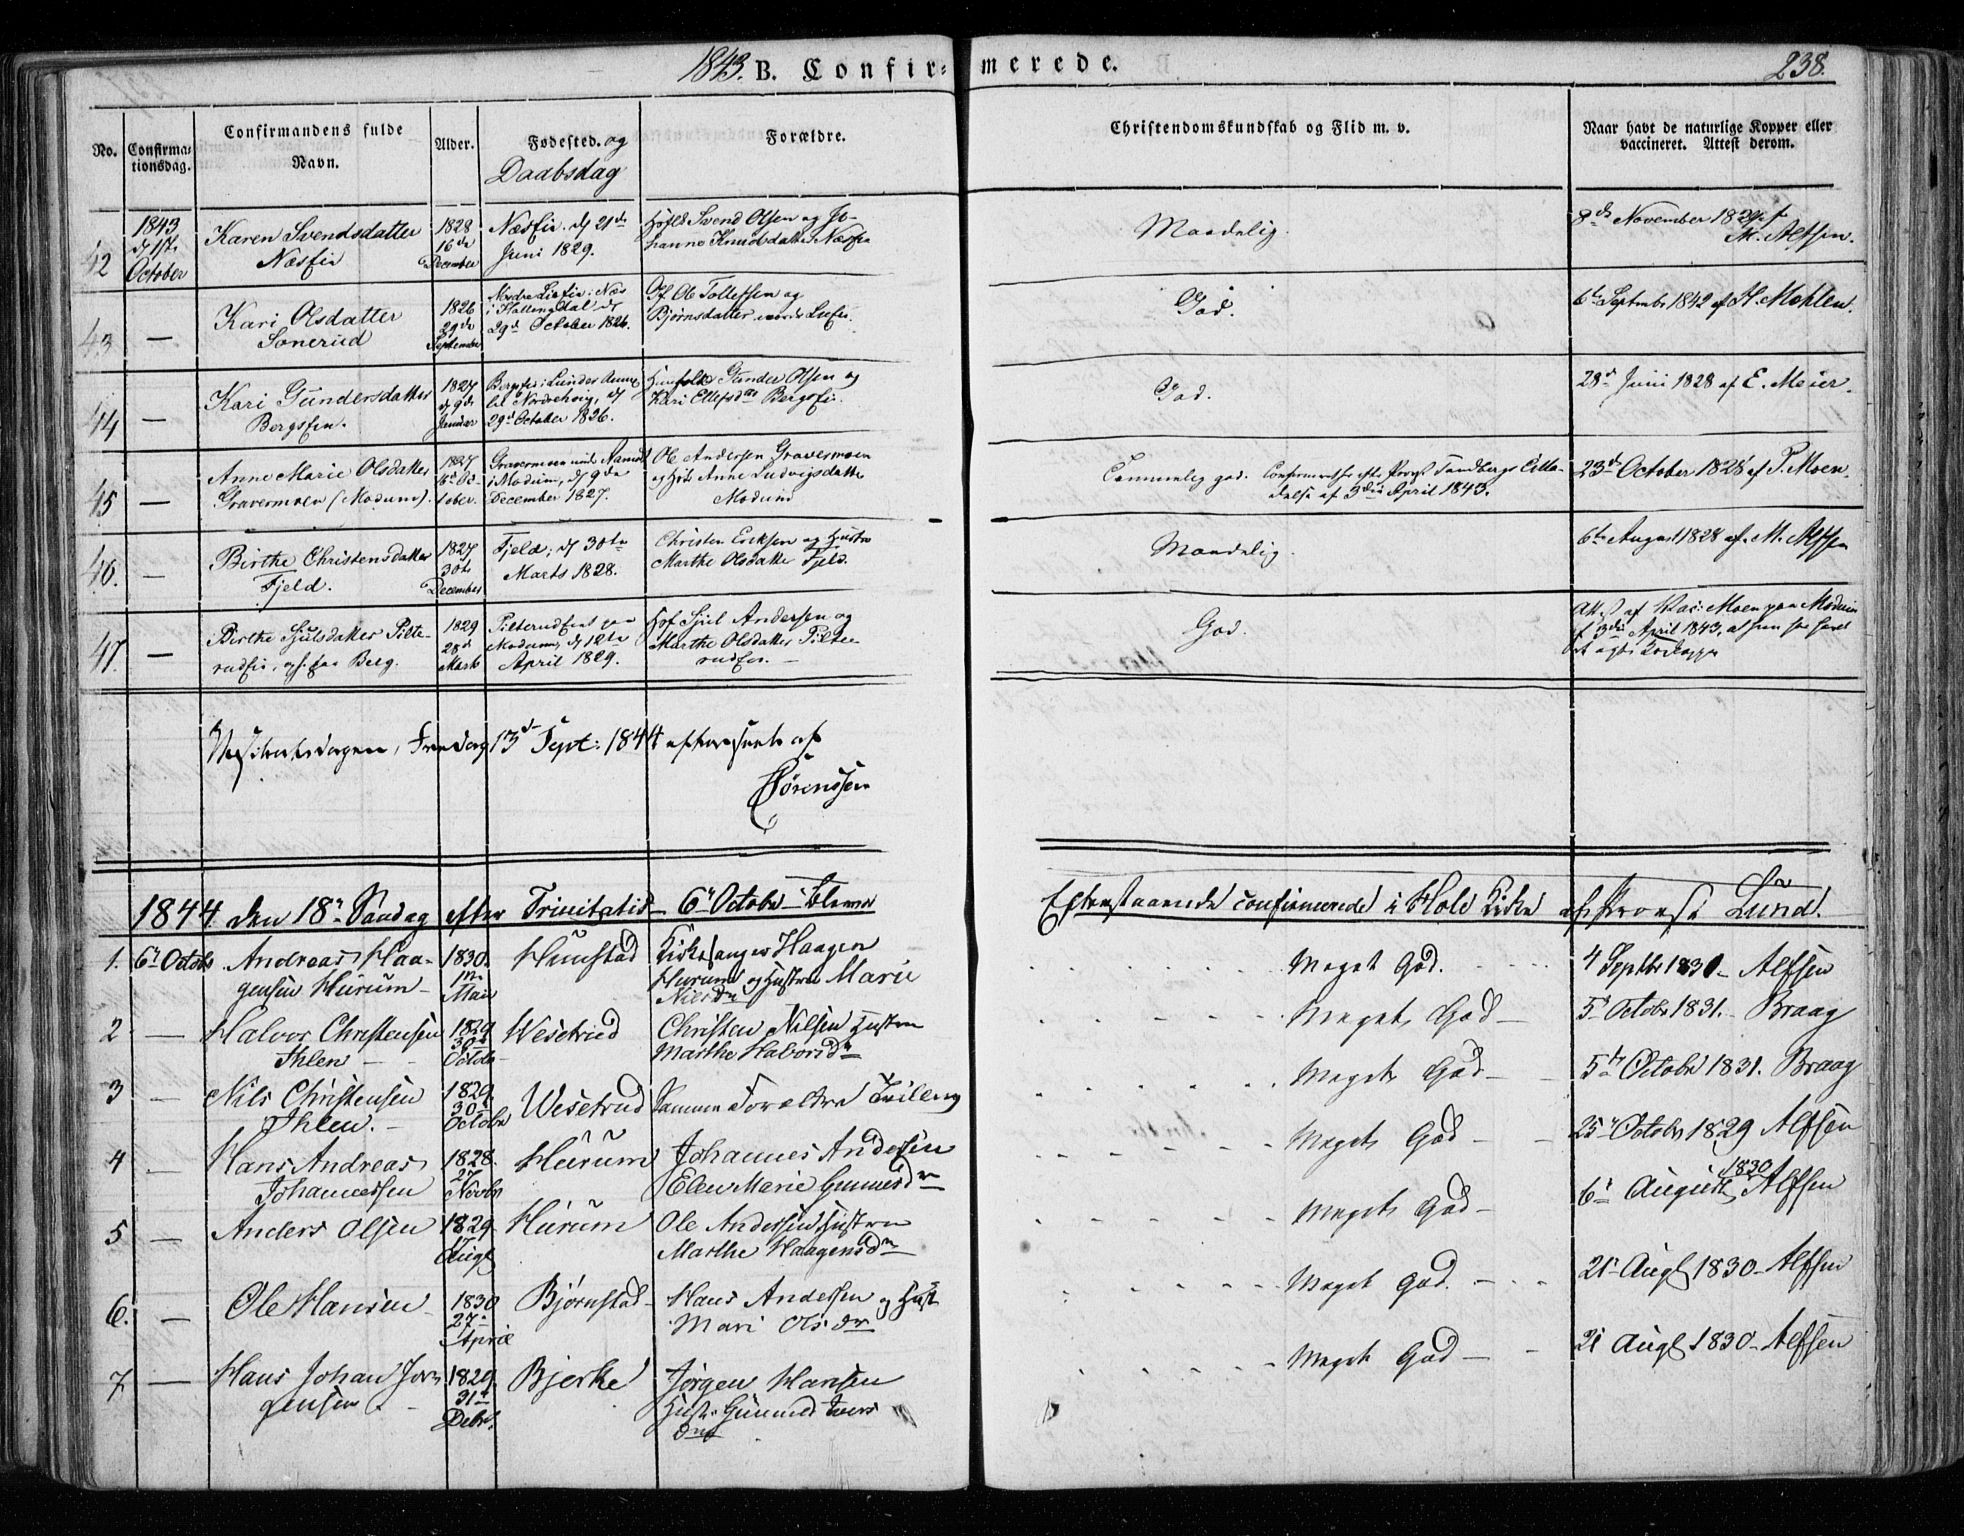 1843. B. Confir-
merede.
238.
No.
Confirma-
tionsdag.
Confirmandens fulde
Navn.
Alder.
Fødested. og
Daabsdag
Forældre.
Christendomskundskab og Flid m. v.
Naar havt de naturlige Kopper eller
vaccineret. Attest derom.
42
1843
October
Karen Svendsdatter
Næsfie
1828
16de
December
Næsfie. d 21de
Juni 1829.
Svend Olsen og Jo-
hanne Knudsdatter Næsfie
Maadelig.
8de November 1829 af
M. Alfsen.
43
—
Kari Olsdatter
Sonerud
1826
29de
September
i Hallingdal d
29d October 1826.
Gf. Ole Tollefsen og
Bjørnsdatter
God.
6te Septembr 1842 af H. Mohlen.
44
—
Kari Gundersdatter
Bergsfie.
1827
d 9de
Januar
Bergsfie i Lunder Annex
til Norderhoug, d
29d October 1826.
Huusfolk Gunder Olsen og
Kari Ellefsdr Bergsfie.
God.
28de Juni 1828 af E. Meier.
45
—
Anne Marie Olsdatter
Gravermoen (Modum).
1827
October.
i Modum, d 9de
December 1827.
Ole Andersen Gravermoen
og Hust. Anne Ludvigsdatter
Modum
Temmelig god.
af 3die April 1843.
23de October 1828 af P. Moen.
46.
—
Birthe Christensdatter
Fjeld.
1827
30te
December
Fjeld; d 30te
Marts 1828.
Christen Ericksen og Hustro
Marthe Olsdatter Fjeld.
Maadelig.
6te August 1828 af M. Alfsen
47.
—
Birthe Sjulsdatter Pilte-
rudeie, Berg.
1829
28de
Marts
Pilterudeiet paa
Modum, d 12te
April 1829.
Hf Sjul Andersen og
Marthe Olsdatter Pilte-
rudeie.
God.
Att. af Vac: Moen paa Modum
af 3die April 1843, at hun har havt
Visitatsdagen, Fredag 13de Sept: 1844 efterseet af
Sørenssen
1844. den 18de Søndag efter Trinitatis 6te October
Efterstaaende confirmerede i Hole Kirke af Provst Lund.
1.
6te Octobr
Andreas Haa-
gensen Hurum
1830.
1ste
Mai
Hunstad
Kirkesanger Haagen
Hurum og Hustru Marie
Nilsdr
Meget God.
4 Septbr 1830 Alfsen
2
—
Halvor Christensen
Ihlen
1829
30te
Octobr
Wesetrud
Christen Nilsen Hustru
Marthe Halvorsdr
Meget God
5te Octobr 1831. Braag
3
—
Nils Christensen
Ihlen.
1829
30te
Octobr
Wesetrud
Samme Forældre Tvilling
Meget God
5te Octobr 1831. Braag
4
—
Hans Andreas
Johannessen
1828.
27
Novbr
Hurum
Johannes Andersen
Elen Marie Gunnersdr
Meget God
25de Octobr 1829 Alfsen
5
—
Anders Olsen
1829
17
Augt
Hurum
Ole Andersen Hustru
Marthe Haagensdr
Meget God
6te August 1830 Alfsen
6.
—
Ole Hansen
1830
27de
April
Bjørnstad
Hans Andersen og Hust
Mari Olsdr
Meget God.
21de Augt 1830 Alfsen
7
—
Hans Johan Jør-
gensen
1829.
31te
Debr.
Bjerke
Jørgen Hansen
Hust. Gunnild Ivers
Dr
Meget God
21 Augt 1830 Alfsen